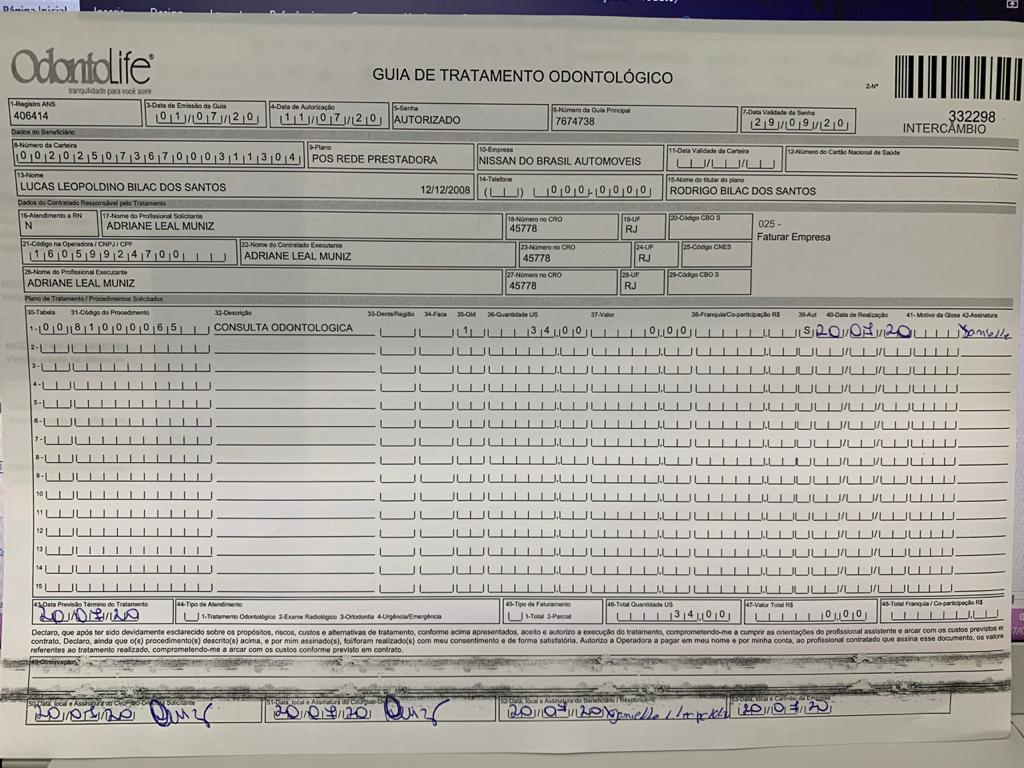 Página Inicial
OdontoLife
tranquilidade para você sorrir
GUIA DE TRATAMENTO ODONTOLÓGICO
2-Nº
332298
INTERCÂMBIO
1-Registro ANS
406414
3-Data de Emissão da Guia
01/07/20
4-Data de Autorização
11/07/20
5-Senha
AUTORIZADO
6-Número da Guia Principal
7674738
7-Data Validade da Senha
29/09/20
Dados do Beneficiário
8-Número da Carteira
00202507367000311304
9-Plano
POS REDE PRESTADORA
10-Empresa
NISSAN DO BRASIL AUTOMOVEIS
11-Data Validade da Carteira
12-Número do Cartão Nacional de Saúde
13-Nome
LUCAS LEOPOLDINO BILAC DOS SANTOS 12/12/2008
14-Telefone
( ) 000-0000
15-Nome do titular do plano
RODRIGO BILAC DOS SANTOS
Dados do Contratado Responsável pelo Tratamento
16-Atendimento a RN
N
17-Nome do Profissional Solicitante
ADRIANE LEAL MUNIZ
18-Número no CRO
45778
19-UF
RJ
20-Código CBO S
025 -
Faturar Empresa
21-Código na Operadora / CNPJ / CPF
16059924700
22-Nome do Contratado Executante
ADRIANE LEAL MUNIZ
23-Número no CRO
45778
24-UF
RJ
25-Código CNES
26-Nome do Profissional Executante
ADRIANE LEAL MUNIZ
27-Número no CRO
45778
28-UF
RJ
29-Código CBO S
Plano de Tratamento / Procedimentos Solicitados
30-Tabela 31-Código do Procedimento 32-Descrição 33-Dente/Região 34-Face 35-Qtd 36-Quantidade US 37-Valor 38-Franquia/Co-participação R$ 39-Aut 40-Data de Realização 41- Motivo da Glosa 42-Assinatura
1- 00 81000065 CONSULTA ODONTOLOGICA 1 34,00 0,00 S 20/07/20 Danielle
2-
3-
4-
5-
6-
7-
8-
9-
10
11
12
13
14
15
43-Data Previsão Término do Tratamento
20/07/20
44-Tipo de Atendimento
1-Tratamento Odontológico 2-Exame Radiológico 3-Ortodontia 4-Urgência/Emergência
45-Tipo de Faturamento
1-Total 2-Parcial
46-Total Quantidade US
34,00
47-Valor Total R$
0,00
48-Total Franquia / Co-participação R$
Declaro, que após ter sido devidamente esclarecido sobre os propósitos, riscos, custos e alternativas de tratamento, conforme acima apresentados, aceito e autorizo a execução do tratamento, comprometendo-me a cumprir as orientações do profissional assistente e arcar com os custos previstos em
contrato. Declaro, ainda que o(s) procedimento(s) descrito(s) acima, e por mim assinado(s), foi/foram realizado(s) com meu consentimento e de forma satisfatória. Autorizo a Operadora a pagar em meu nome e por minha conta, ao profissional contratado que assina esse documento, os valores
referentes ao tratamento realizado, comprometendo-me a arcar com os custos conforme previsto em contrato.
49-Observação
50-Data, local e Assinatura do Cirurgião-Dentista Solicitante
20/07/20
51-Data, local e Assinatura do Cirurgião-Dentista
20/07/20
52-Data, local e Assinatura do Beneficiário / Responsável
20/07/20 Danielle
53-Data, local e Carimbo da Empresa
20/07/20